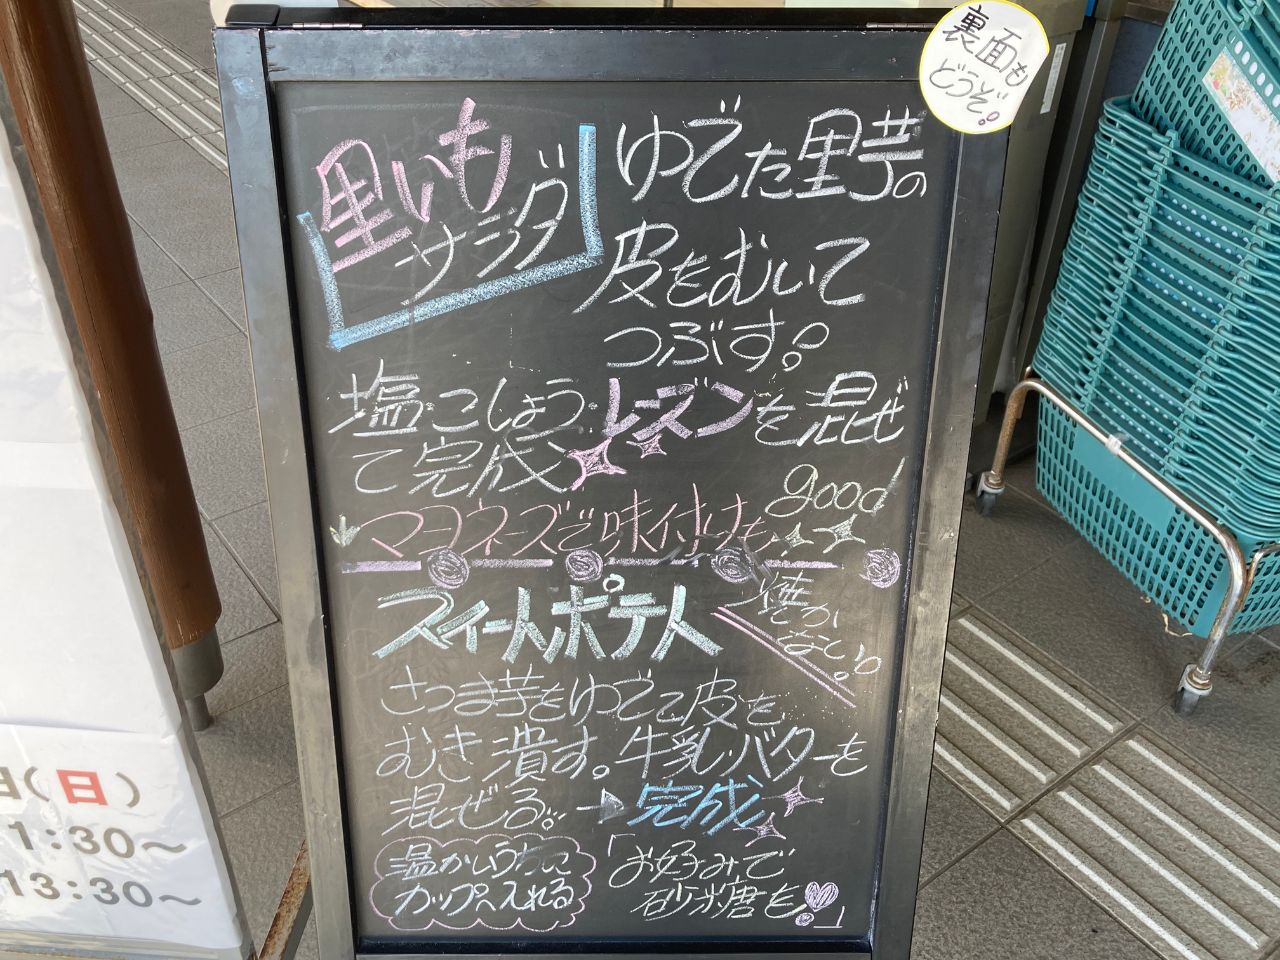 裏面も
どうぞ!
里いも
サラダ
ゆでた里芋の
皮をむいて
つぶす!
塩・こしょう・レーズンを混ぜ
て完成
マヨネーズで味付けも
good
スイートポテト
焼か
ない!
さつま芋をゆでて皮を
むき潰す。牛乳、バターを
混ぜる。→完成
温かいうちに
カップへ入れる
「お好みで
砂糖を!」
日(日)
1:30～
13:30～